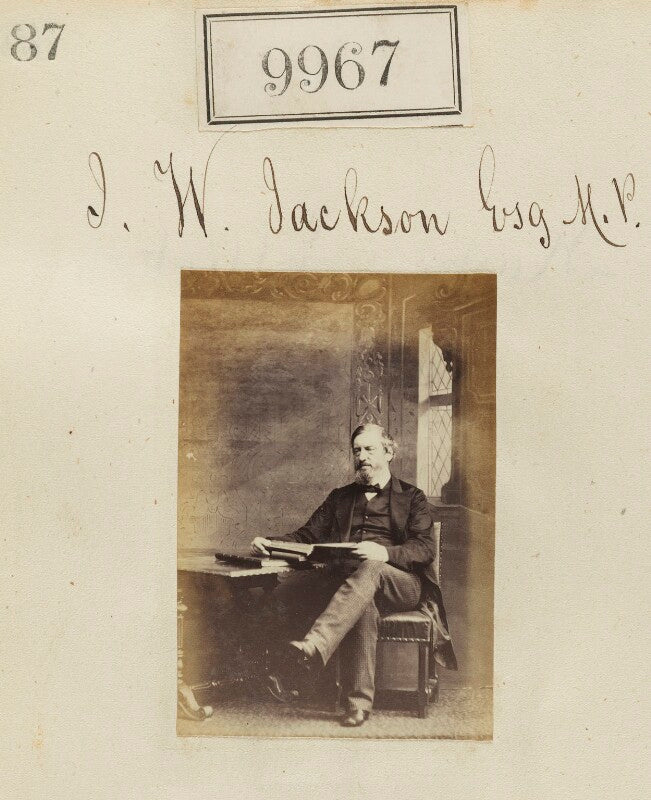 87
9967
J. W. Jackson Esq M.P.